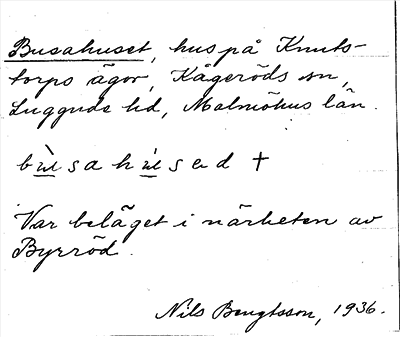 Busahuset, hus på Knuts-
torps ägor, Kågeröds sn,
Luggude hd, Malmöhus län.
bu̇sahu̇sed †
Var beläget i närheten av
Byrröd.
Nils Bengtsson, 1936.